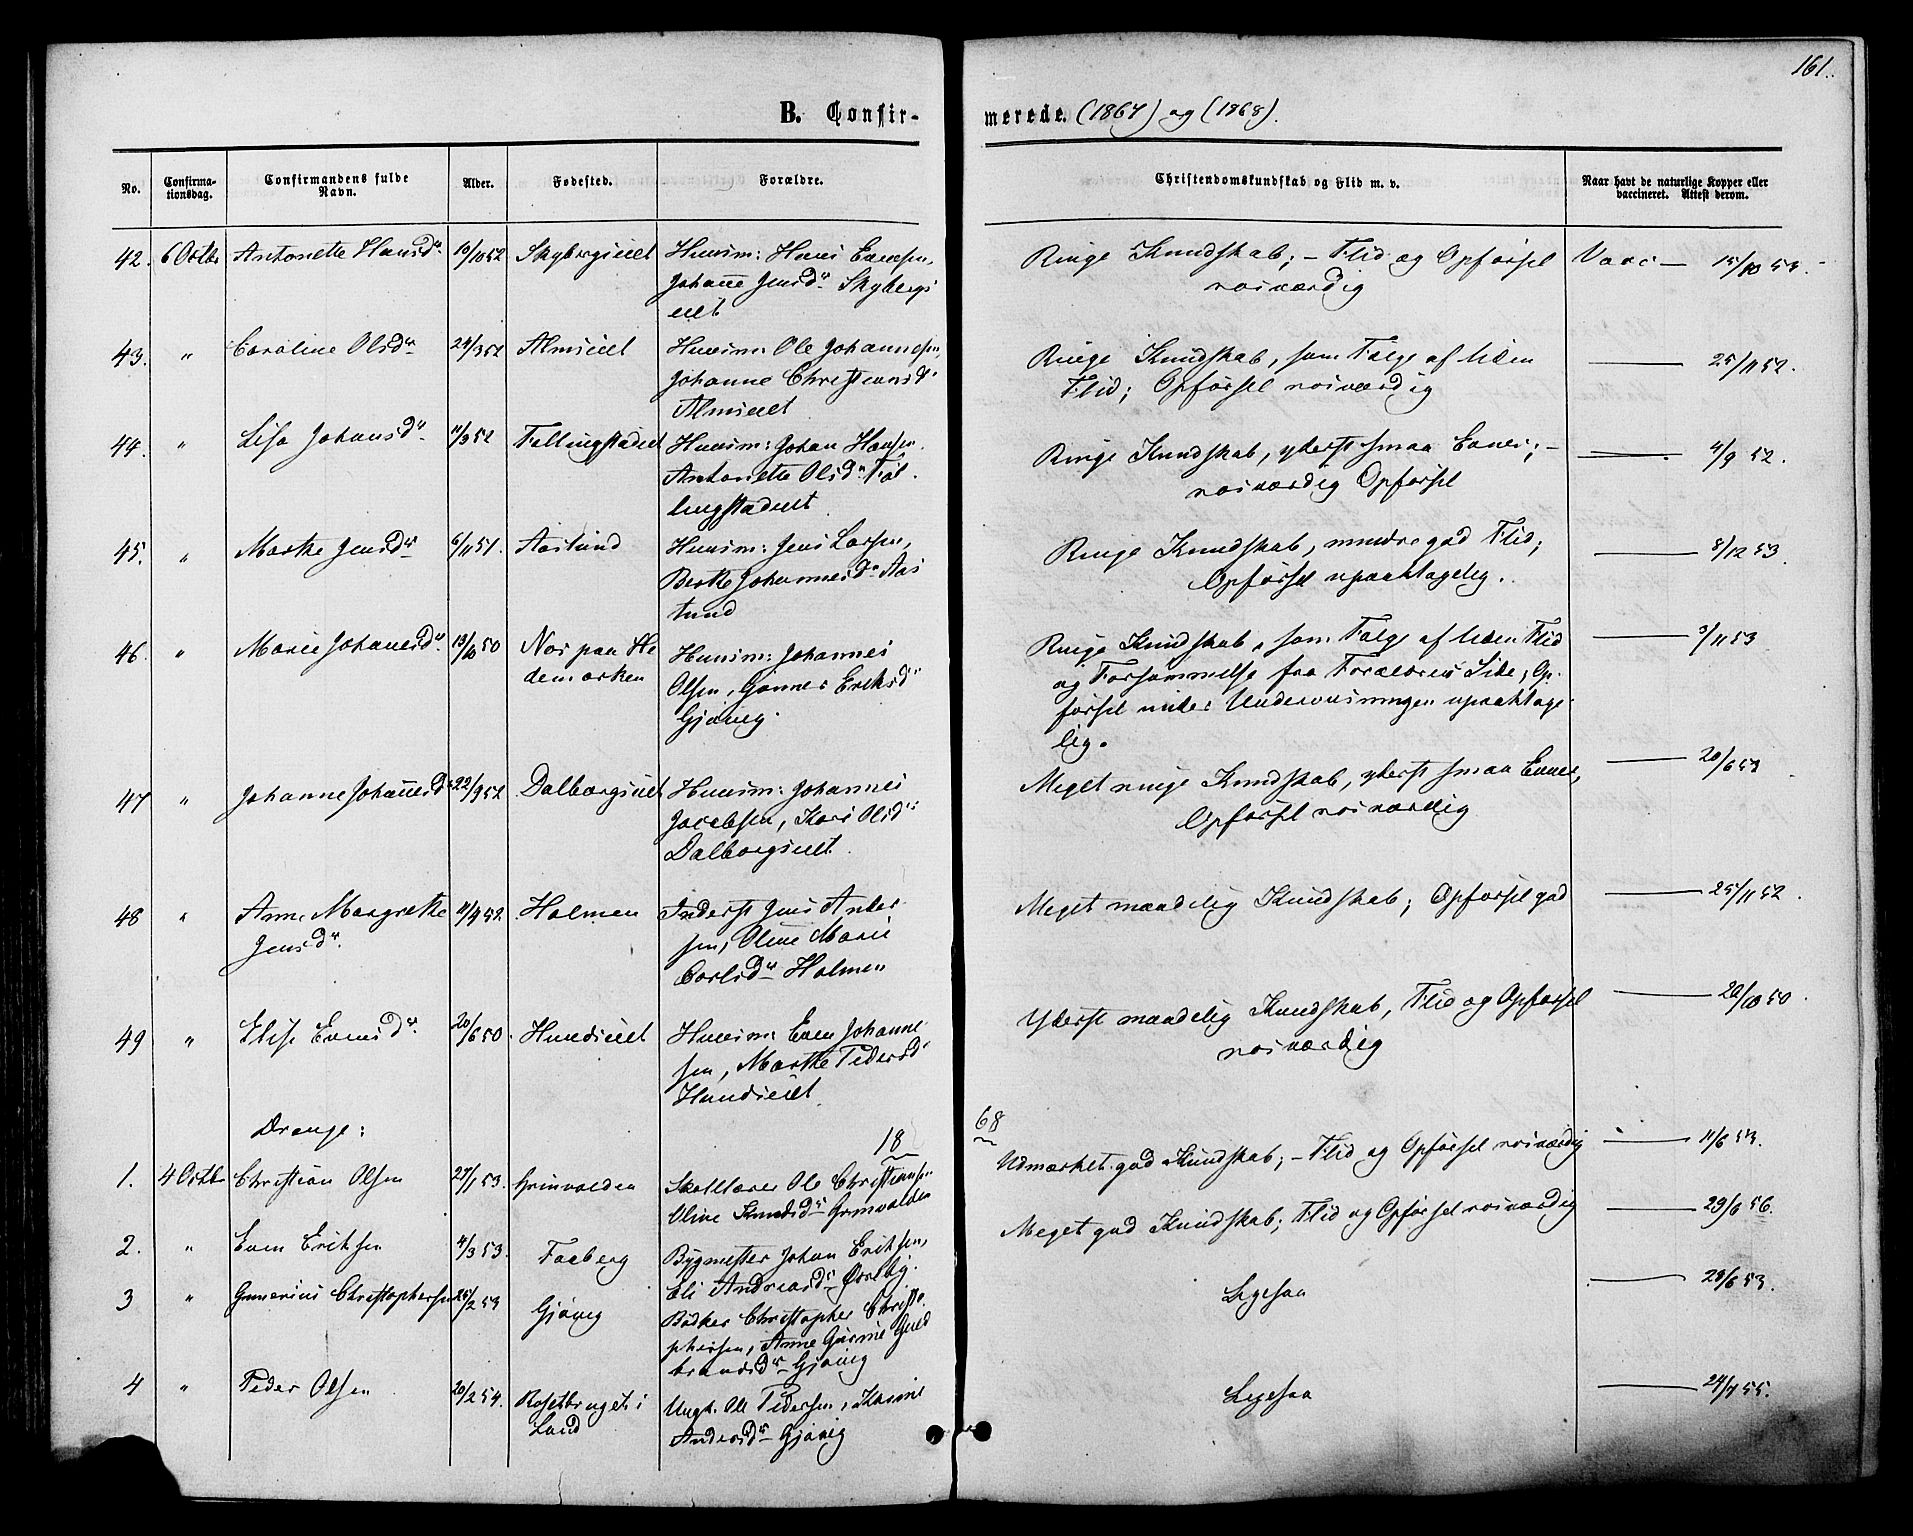 161.
B. Confir-
merede. (1867) og (1868).
No.
Confirma-
tionsdag.
Confirmandens fulde
Navn.
Alder.
Fødested.
Forældre.
Christendomskundskab og Flid m. v.
Naar havt de naturlige Kopper eller
vaccineret. Attest derom.
42. 6 Octbr Antonette Hansd 10/10 52 Skybergseiet Huusm: Hans Evensen,
Johanne Jensd Skybergs
eiet
Ringe Kundskab; – Flid og Opførsel
rosværdig
Vacc – 15/10 53.
43. " Caroline Olsd 24/3 52 Almseiet Huusm: Ole Johannesen,
Johanne Christiansd
Almseiet
Ringe Kundskab, som Følge af liden
Flid; Opførsel rosværdig
25/11 52.
44. " Lisa Johansd 11/3 52 Fallingstadeiet Huusm: Johan Hansen
Antonette Olsd Fal
lingstadeiet
Ringe Kundskab, yderst smaa Evner; –
rosværdig Opførsel
4/9 52.
45. " Marthe Jensd 6/11 51. Aaslund Huusm: Jens Larsen,
Berthe Johannesd Aas
lund
Ringe Kundskab, mindre god Flid;
Opførsel upaaklagelig.
8/12 53.
46. " Marie Johansd 13/10 50 Næs paa He
demarken Huusm: Johannes
Olsen, Gunner Eriksd
Gjøvig
Ringe Kundskab, som Følge af liden Flid
og Forsømmelse fra Forældrenes Side; Op-
førsel under Undervisningen upaaklage-
lig.
3/11 53
47 " Johanne Johannesd 22/9 52 Dalborgseiet Huusm: Johannes
Jacobsen, Kari Olsd
Dalborgseiet.
Meget ringe Kundskab, yderst smaa Evner,
Opførsel rosværdig
20/6 53
48 " Anne Margrethe
Jensd. 11/4 52. Holmen Inderst Jens Ander
sen, Oline Marie
Carlsd Holmen
Meget maadelig Kundskab; Opførsel god
25/11 52.
49 " Elise Evensd. 20/6 50. Hundseiet Huusm: Even Johanne
sen, Marthe Pedersd
Hundseiet
Yderst maadelig Kundskab, Flid og Opførsel
rosværdig
20/10 50.
Drenge:
18
68
1. 4 Octbr Christian Olsen 27/1 53. Grinvolden Skolelærer Ole Christiansen
Oline Knudsd Grinvolden
Udmærket god Kundskab; – Flid og Opførsel rosværdig
11/6 53.
2. " Even Eriksen 4/3 53. Faaberg Bygmester Johan Eriksen,
Eli Andreasd Ørneby.
Meget god Kundskab; Flid og Opførsel rosværdig
29/6 56.
3 " Gunerius Christophersen 25/2 53 Gjøvig Bødker Christopher Christo
phersen, Anne Gurine Guld
brandsd Gjøvig
Ligesaa
28/6 53.
4 " Peder Olsen 20/2 54. Rosetbruget i
Land Ungk. Ole Pedersen, Karine
Andersd Gjøvig
Ligesaa
24/7 55.